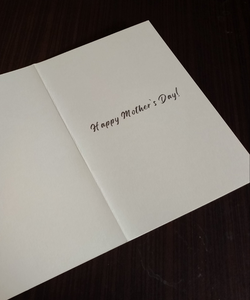 Happy Mother's Day!